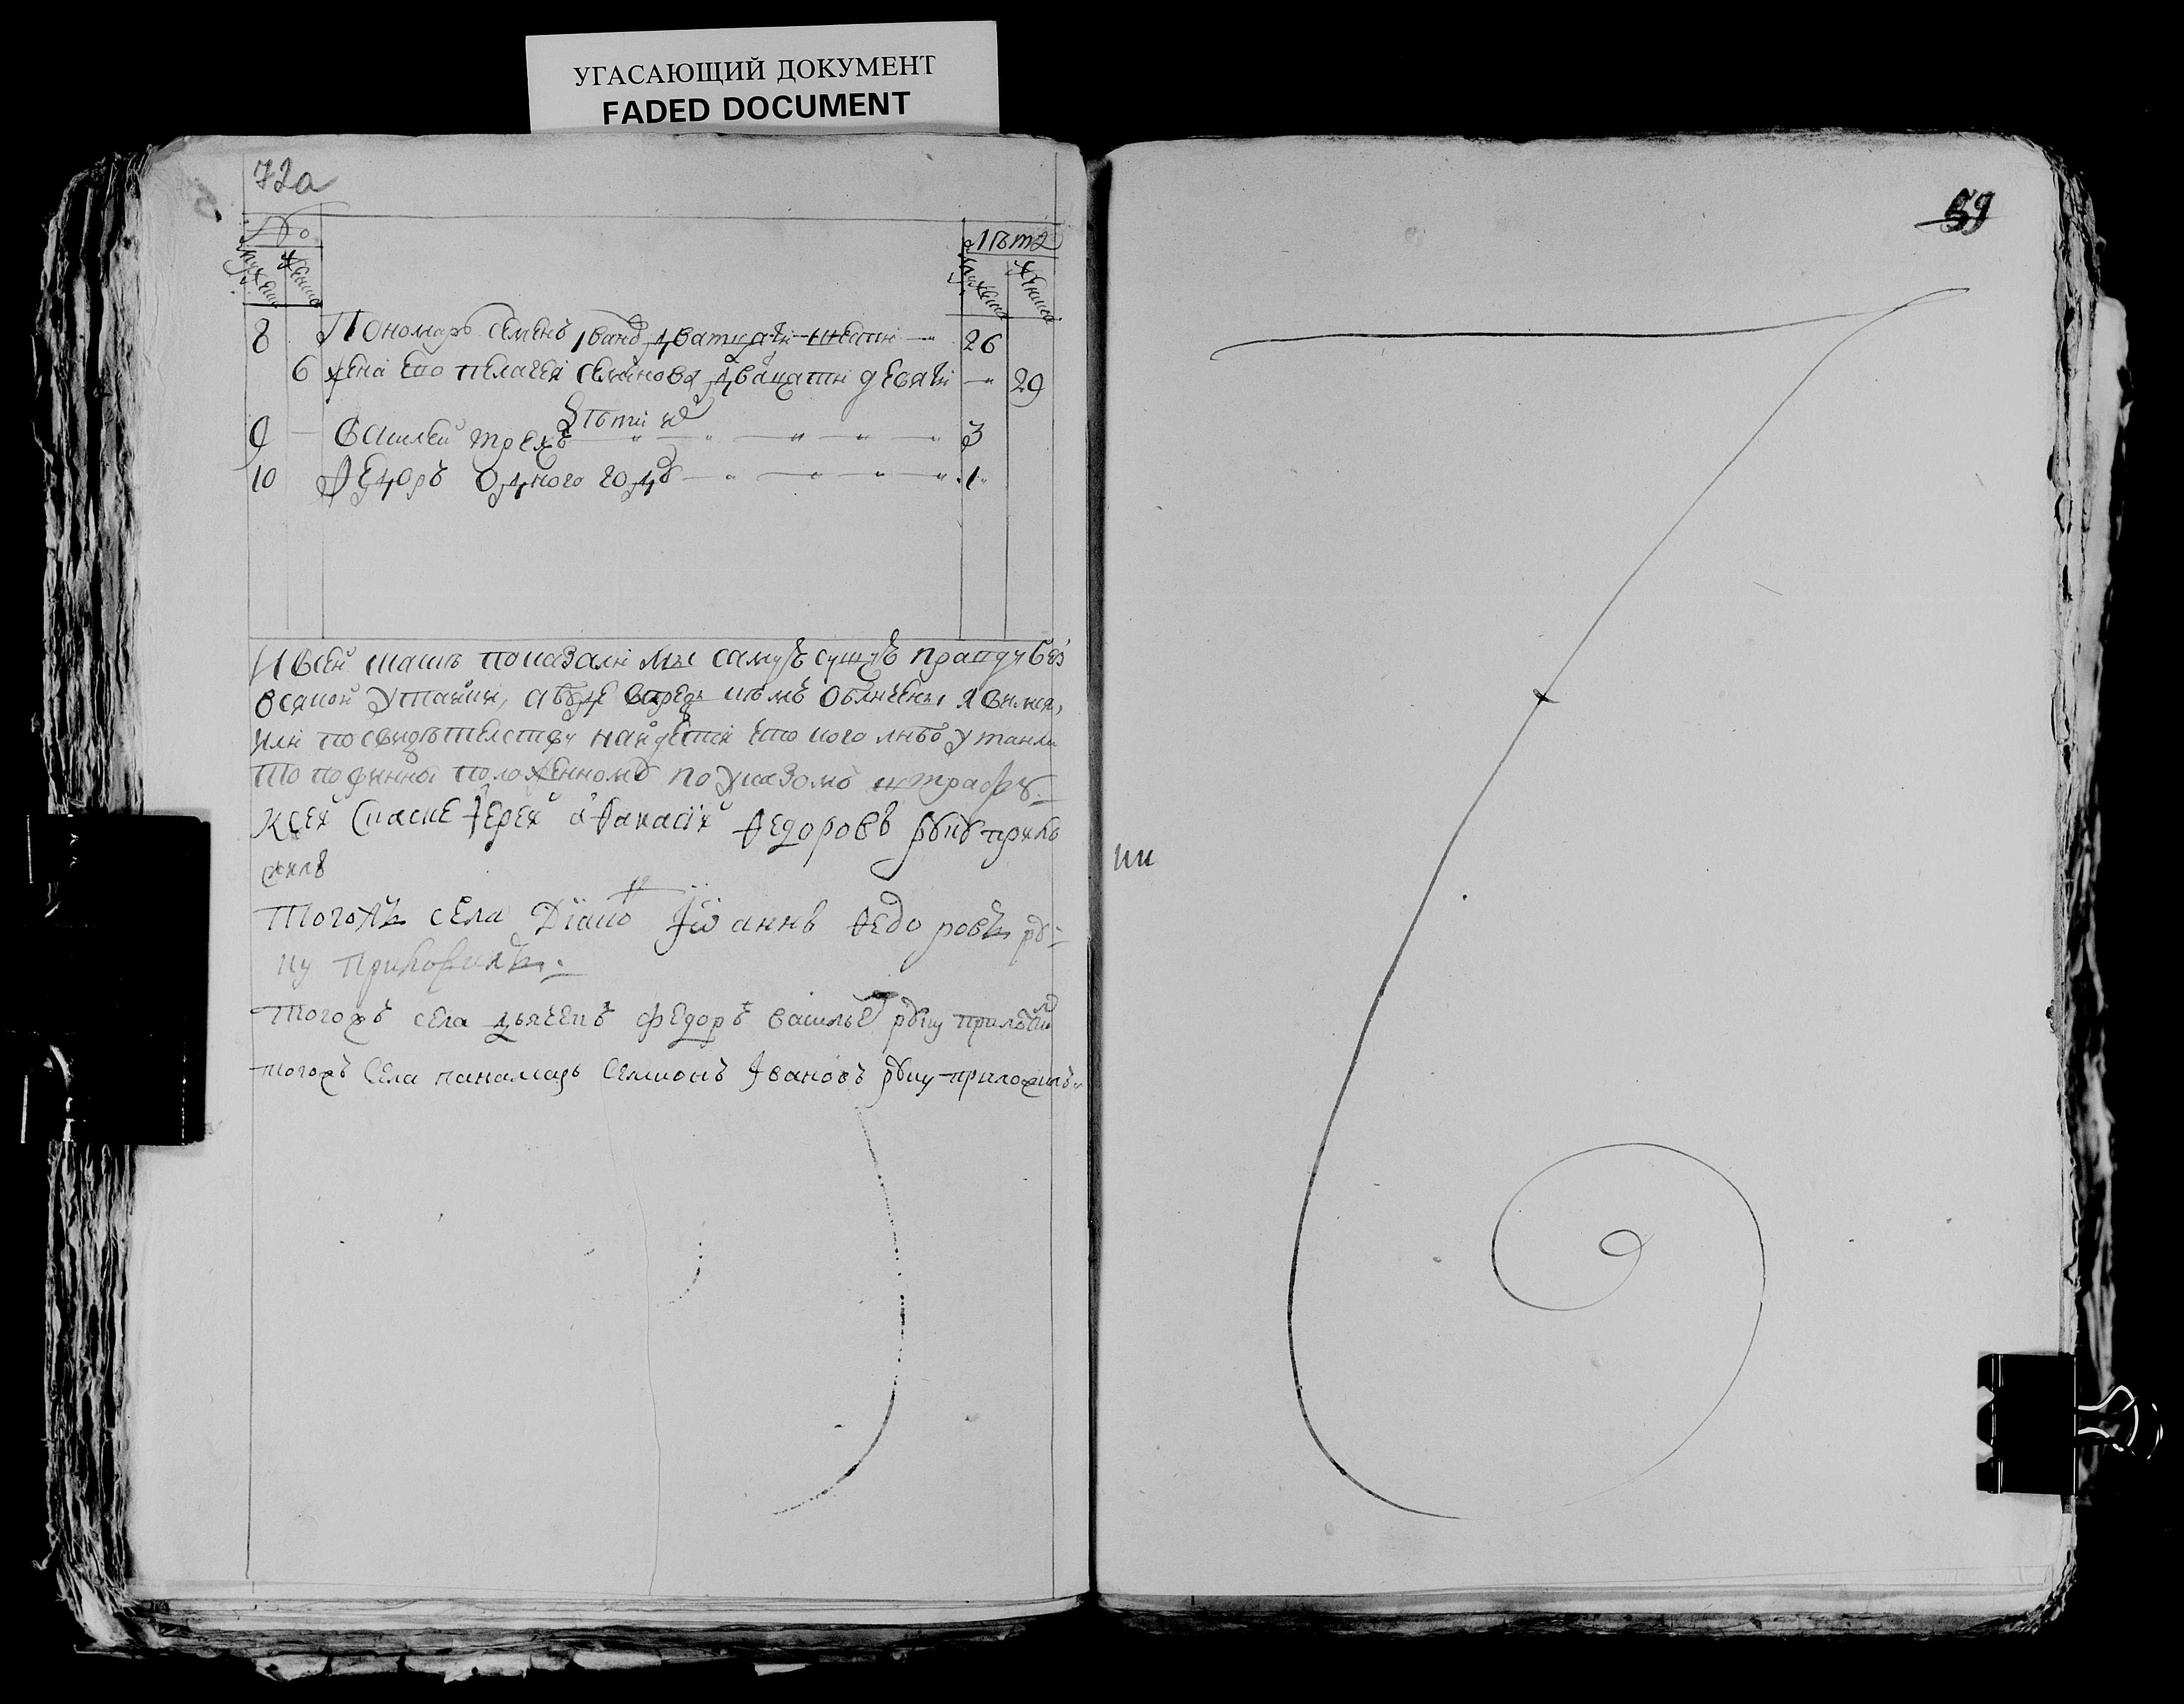 УГАСАЮЩИЙ ДОКУМЕНТ
FADED DOCUMENT
72а
59
№
Лѣта
мужеска
женска
мужеска
женска
8 Пономарь Семенъ Iвановъ дватцати шести 26
6 жена ево Пелагея Семенова двацати девяти 29
дѣти их
9 Василей трехъ 3
10 Ѳедоръ одного году 1
И въ сей шашъ показали мы самую сущую правду без
всякой утайки, а буде впредь в чемъ обличены явимся,
или по свидѣтелству найдется что кого либо утаили
то повинни положенному по указомъ штрафу
К сей скаске Iерей Аѳанасiй Ѳедоровъ руку прило
жилъ
Тогожъ села Дiако Iѡаннъ Ѳедоровъ ру-
ку приложилъ
тогожъ села дьячекъ Федоръ Василье руку приложи
тогожъ села панамарь Семионъ Iвановъ руку приложилъ